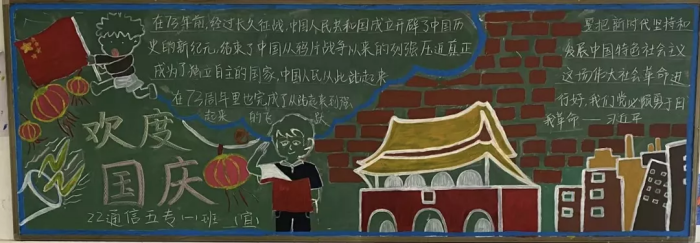 在73年前,经过长久征战,中国人民共和国成立开辟了中国历
史的新纪元,结束了中国从鸦片战争以来的列强压迫真正
成为了独立自主的国家,中国人民从此站起来
在73周年里也完成了从站起来到强
起来的飞跃
欢度
国庆
22通信五专(一)班 (宣)
要把新时代坚持和
发展中国特色社会主义
这场伟大社会革命进
行好,我们党必须勇于自
我革命——习近平